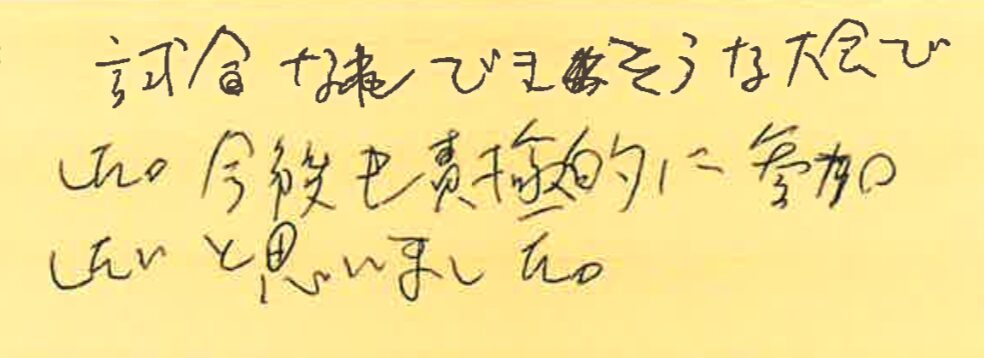 試合なれできそうな大会で
した。今後も責極的に参加
したいと思いました。